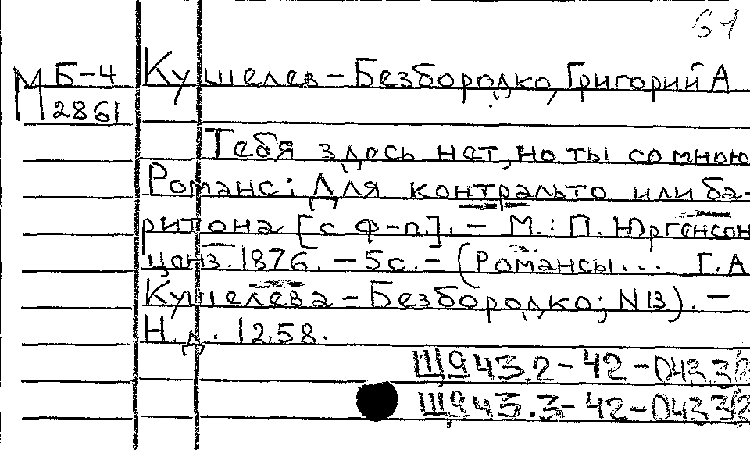 61
М Б-4 Кушелев-Безбородко, Григорий А
2861
Тебя здесь нет, но ты со мною
Романс: Для контральто или ба-
ритона [с ф-п.]. - М.: П. Юргенсон
ценз. 1876. - 5с. - (Романсы... Г.А
Кушелева-Безбородко; N13). -
Н.д. 1258.
Щ943.2-42-0433
Щ943.3-42-0433